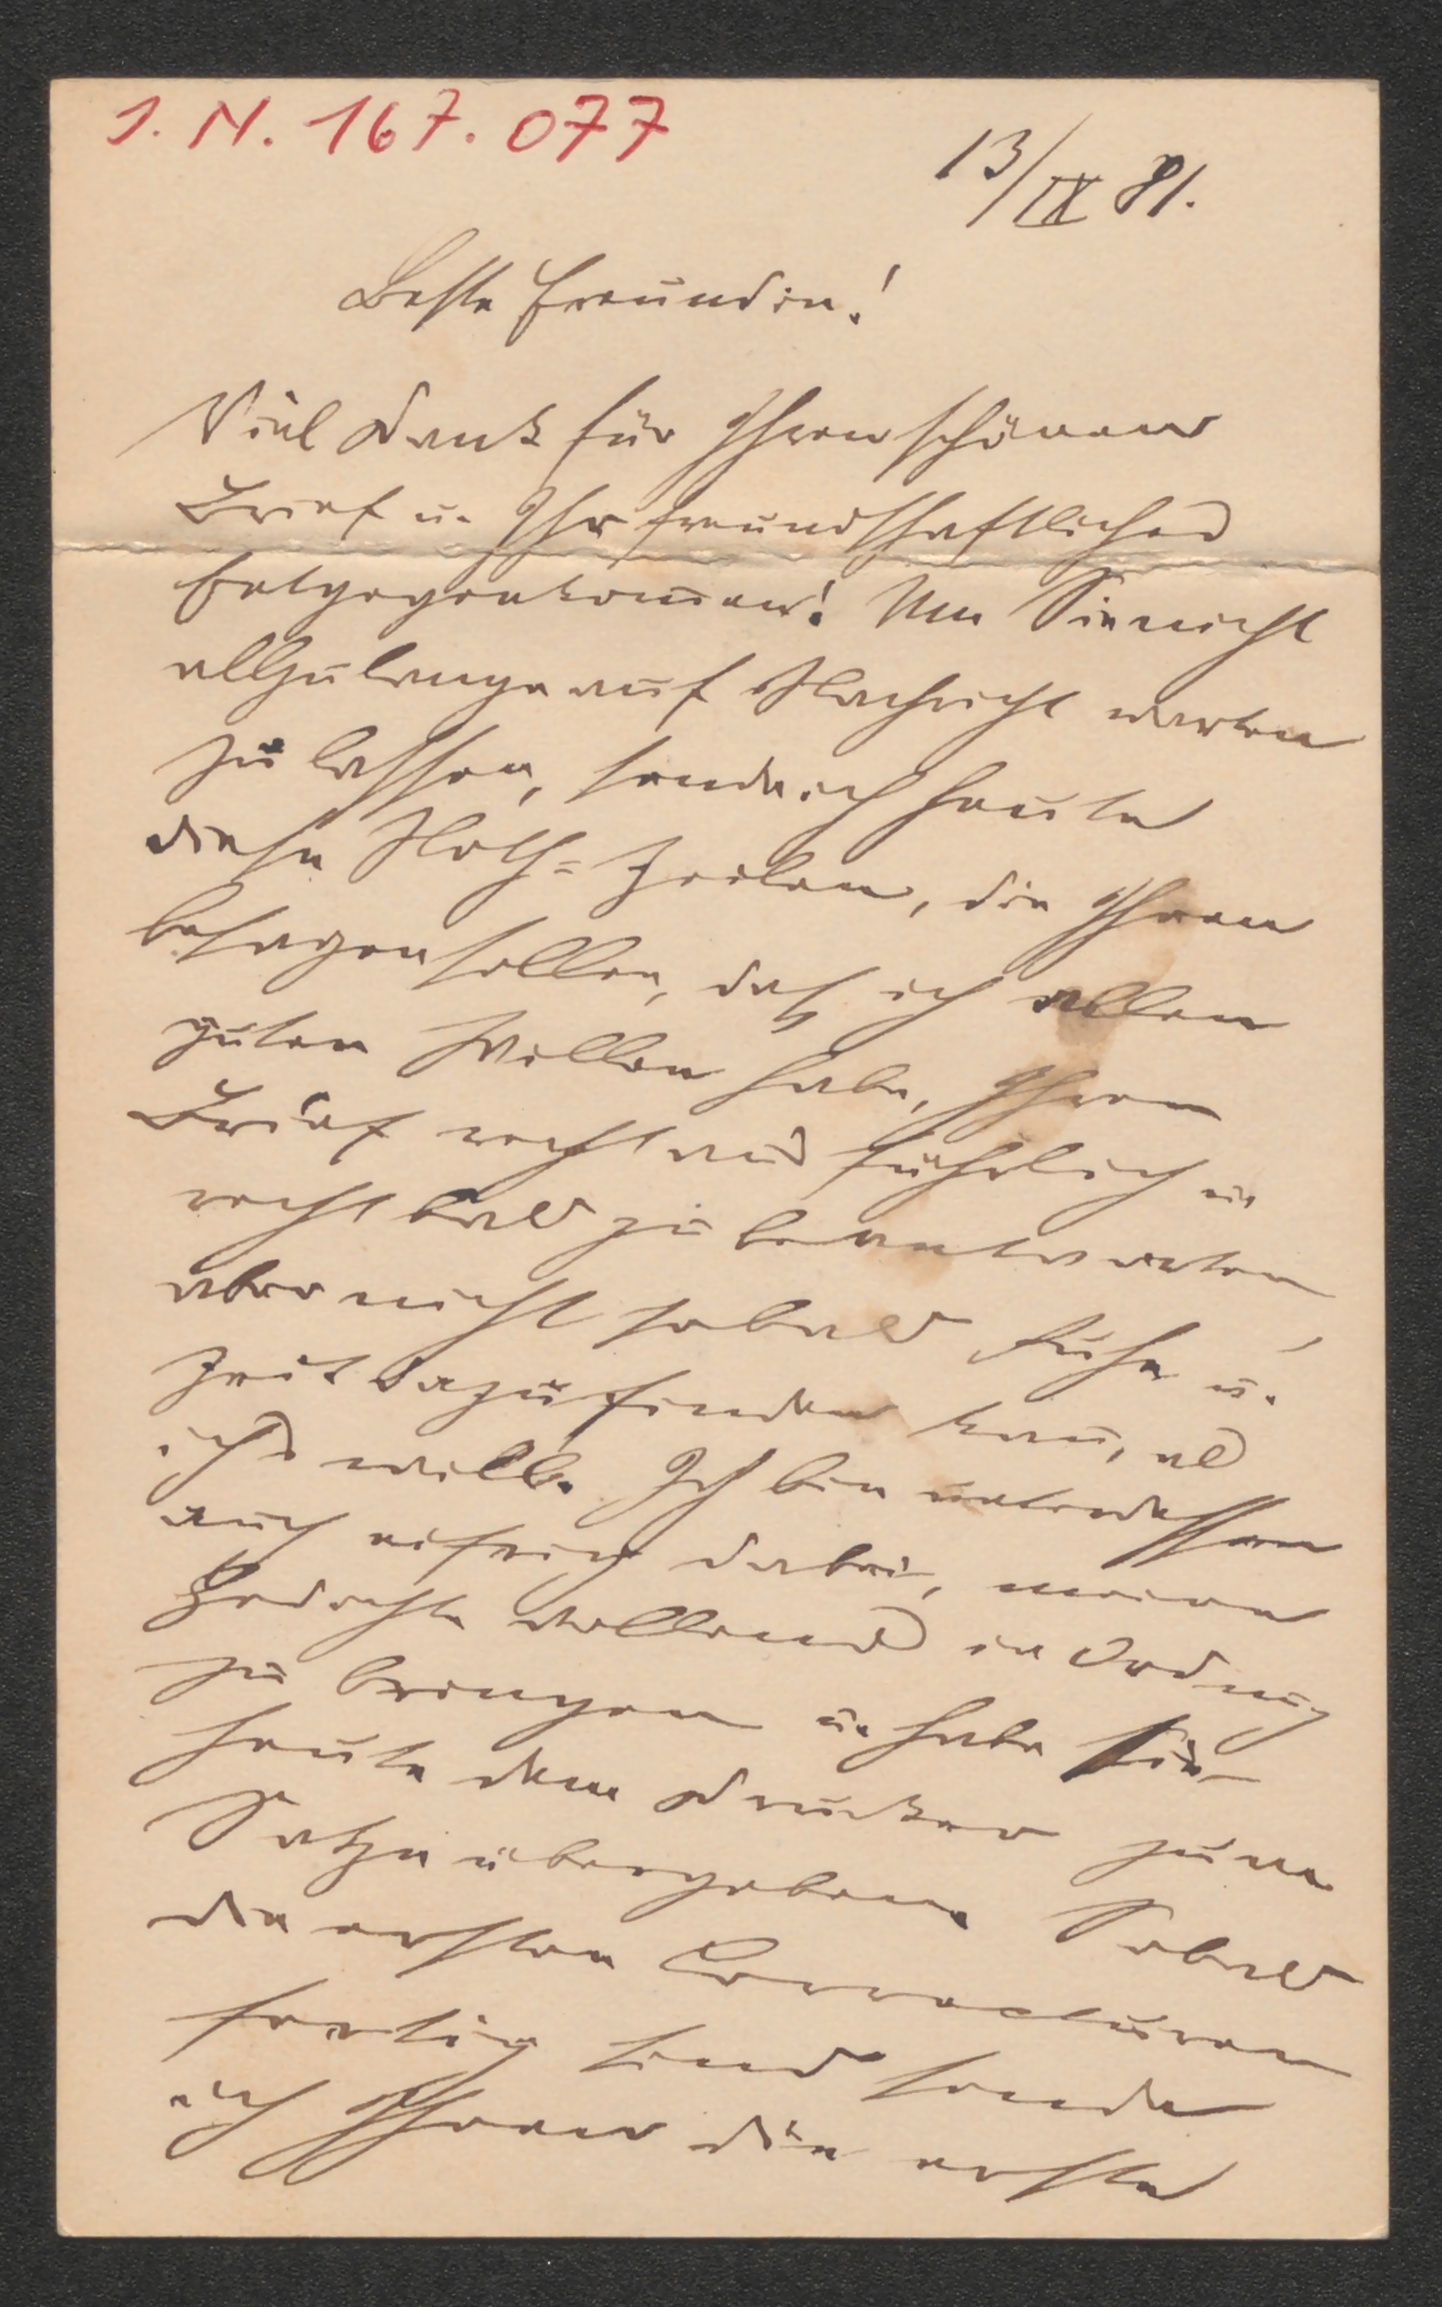 J. N. 167.077
13/IX 81.
Beste Freundin!
Viel Dank für Ihren schönen
Brief u. Ihr freundschaftliches
Entgegenkom̅en! Um Sie nicht
allzulange auf Nachricht warten
zu lassen, sende ich heute
diese Noth-Zeilen, die Ihnen
besagen sollen, daß ich allen
guten Willen habe, Ihren
Brief recht ausführlich u
recht bald zu beantworten
aber nicht sobald Ruhe u.
Zeit dazu finden kan̅, als
ich's will. Ich bin unterdessen
auch eifrig dabei, meine
Gedichte vollends in Ordnung
zu bringen u. habe sie
heute dem Drucker zum
Satze übergeben. Sobald
die ersten Correcturen
fertig sind sende
ich Ihnen die erste